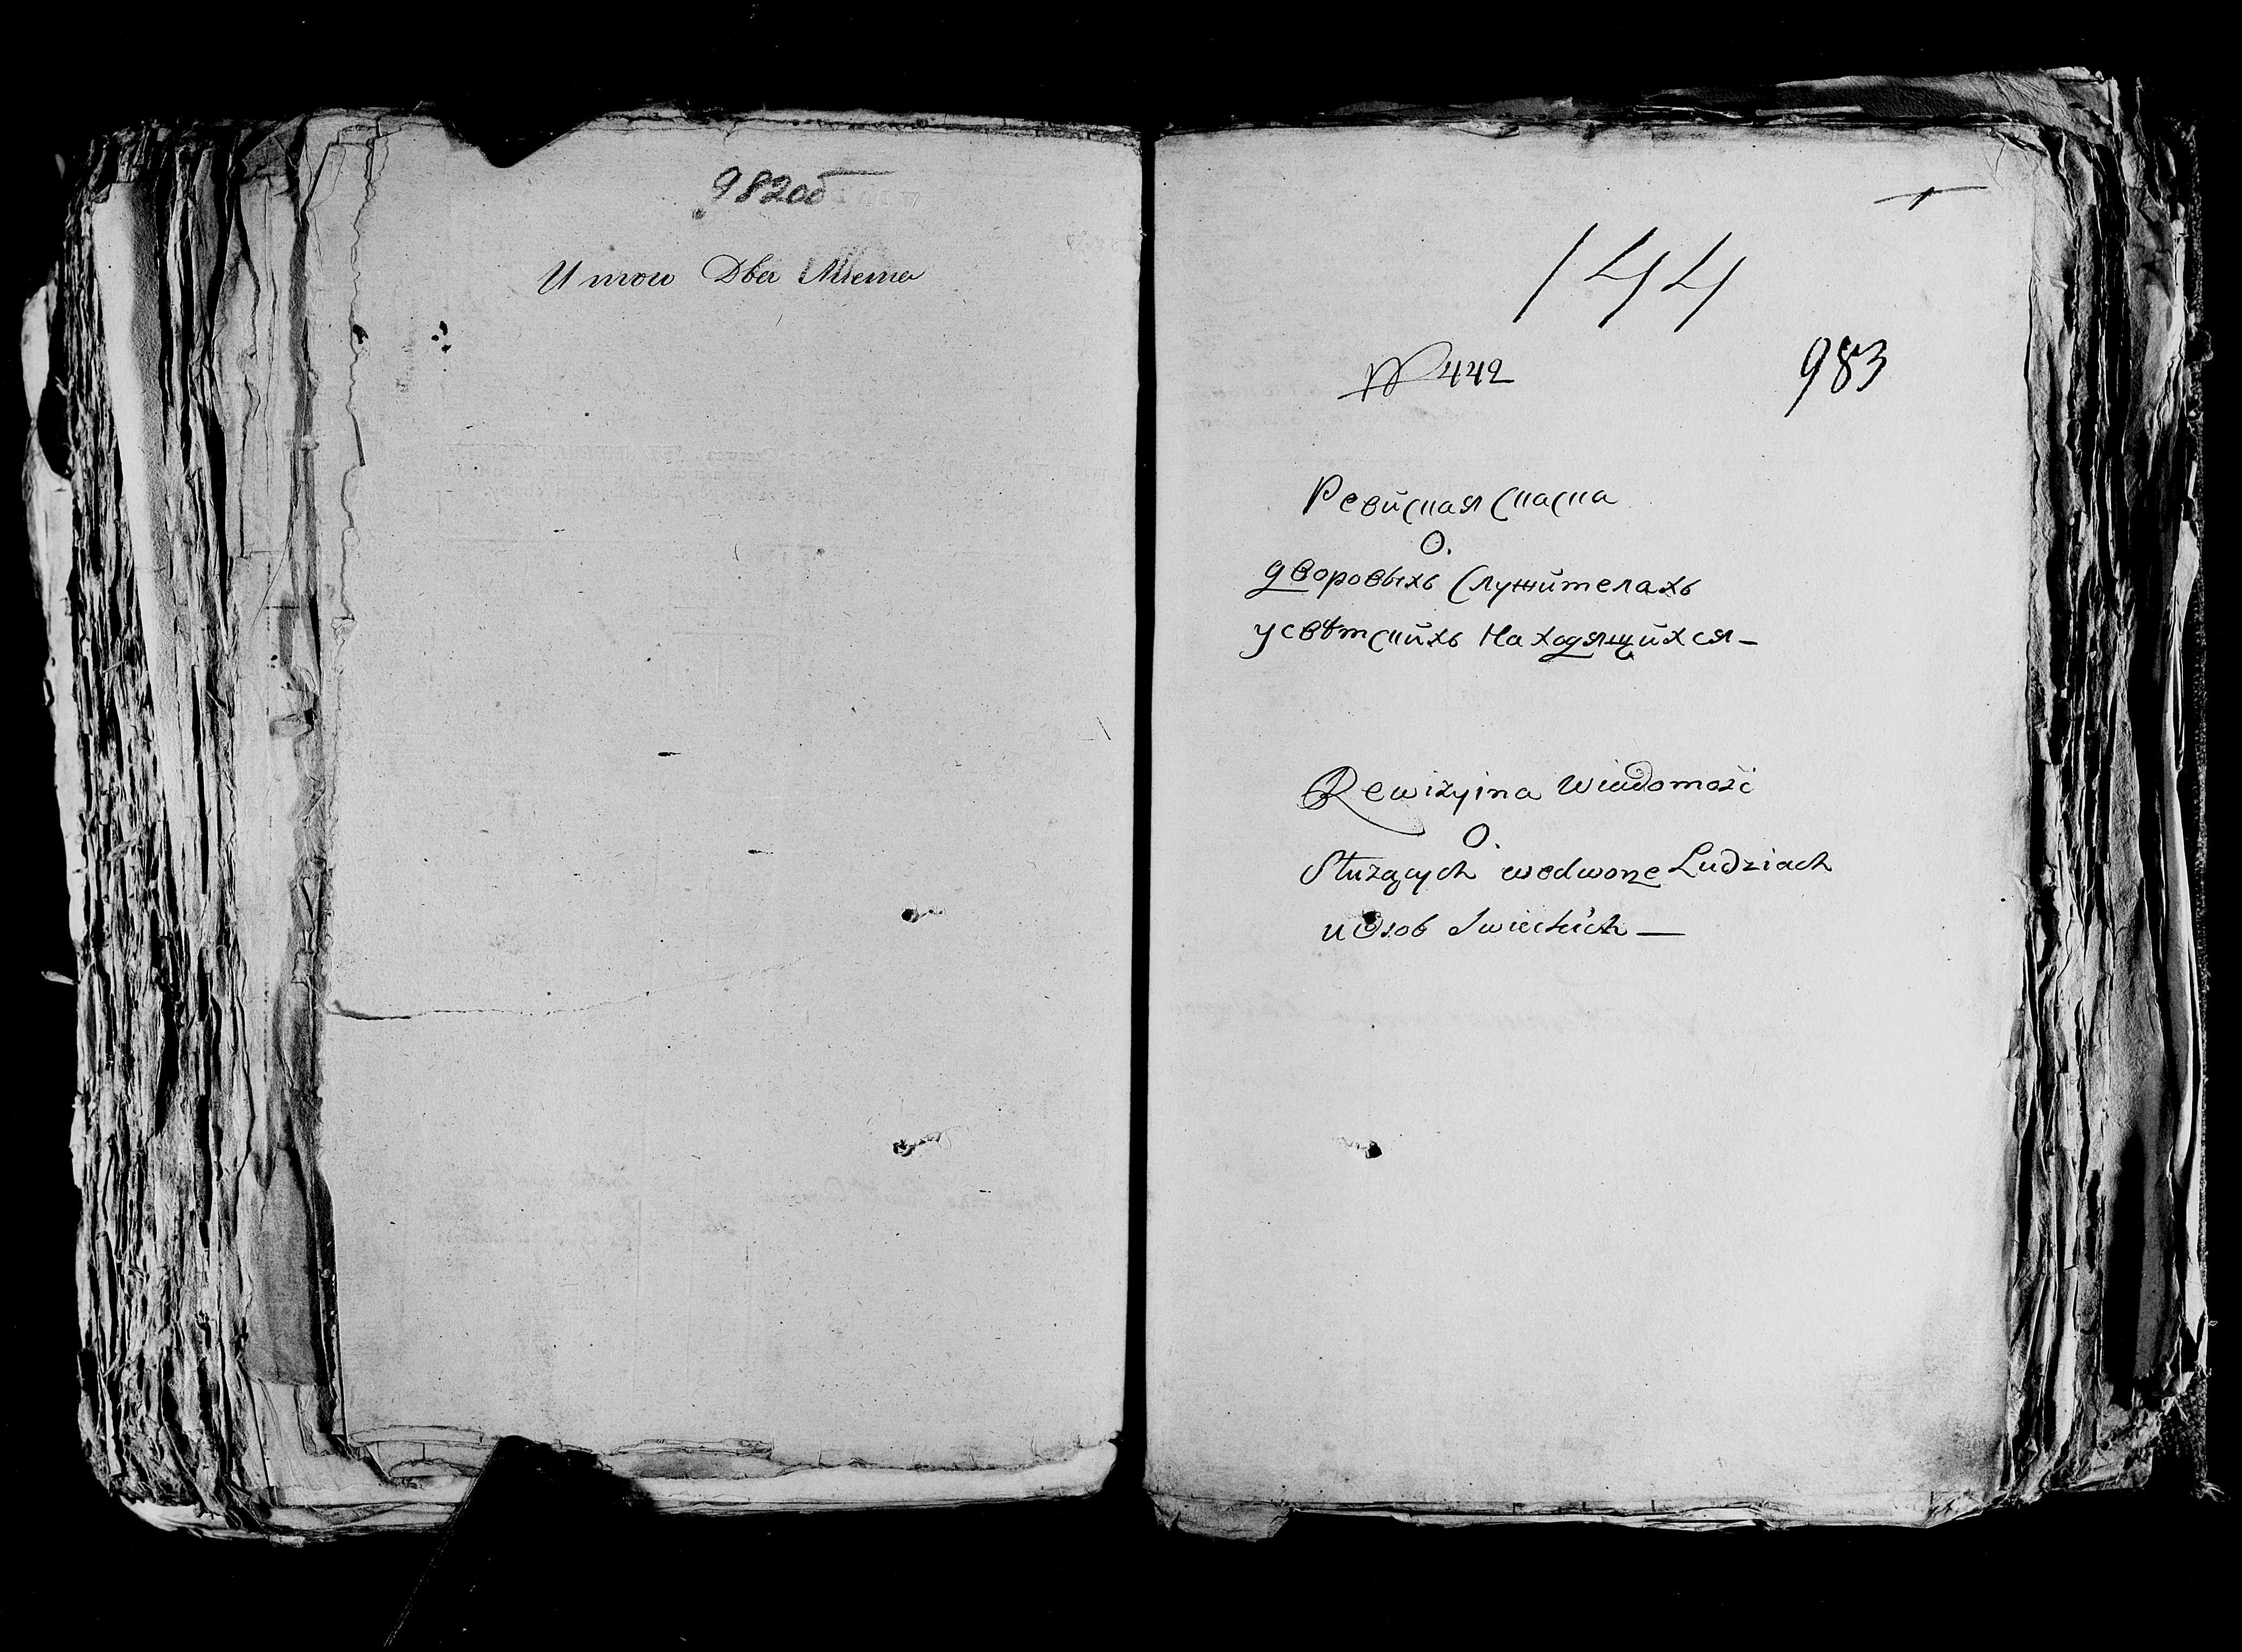 982об
Итого Два Листа
144
№ 442
983
Ревиская скаска
О.
дворовыхъ служителахъ
усвѣтскихъ находящихся—
Rewizyina Wiadomość
O.
Służących wedworze Ludziach
u Osob Swieckich—